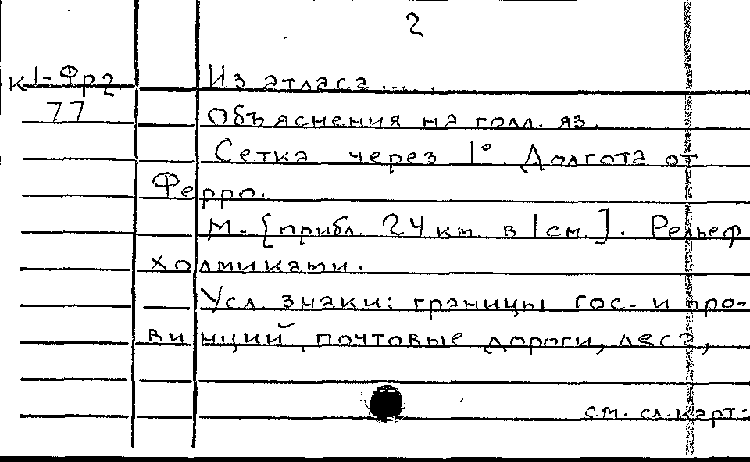 2
К 1-Фр2 Из атласа ....
77 Объяснения на голл. яз.
Сетка через 1°. Долгота от
Ферро.
М. [прибл. 24 км. в 1 см.]. Рельеф
холмиками.
Усл. знаки: границы гос. и про-
винций, почтовые дороги, леса,
см. сл. карт.